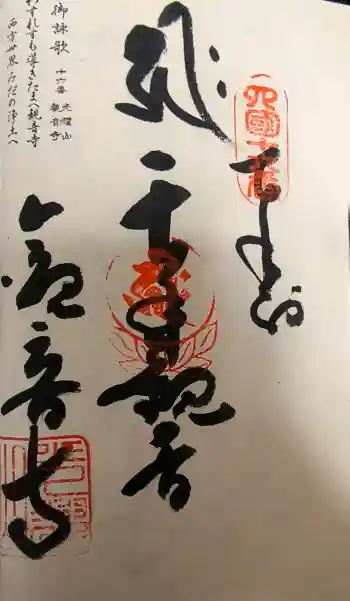 四國十六番
奉納
千手観音
観音寺
御詠歌
十六番 光耀山
観音寺
わすれずも導きたまへ観音寺
西方世界みだの浄土へ